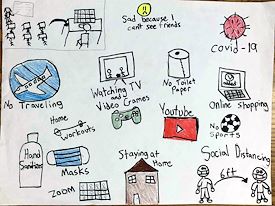 Sad because
cant see friends
covid-19
No Toilet
Paper
No Traveling
Watching TV
and
Video Games
Online Shopping
Youtube
Home
Workouts
No
Sports
Hand
Sanitizer
Masks
Staying at
Home
Social Distancing
6ft
ZOOM